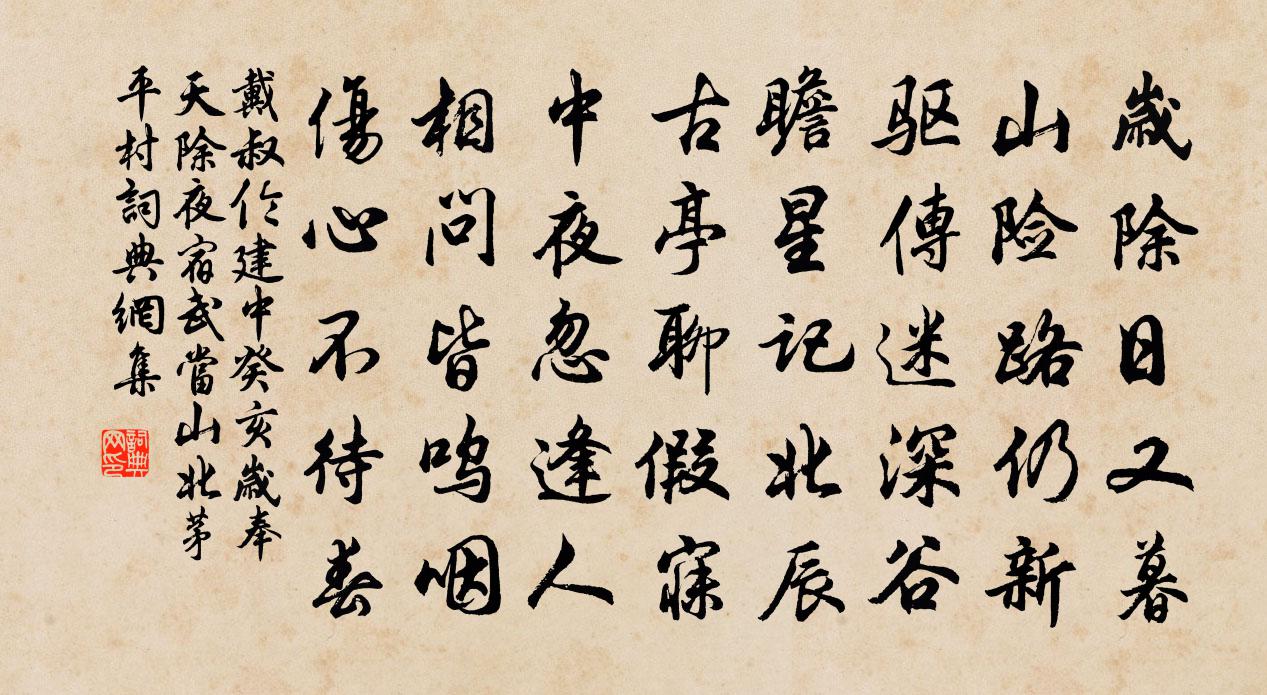 歲除日又暮
山险路仍新
驱傳迷深谷
瞻星记北辰
古亭聊假寐
中夜忽逢人
相问皆呜咽
傷心不待春
戴叔伦建中癸亥歲奉
天除夜宿武當山北茅
平村詞典網集
詞典网印